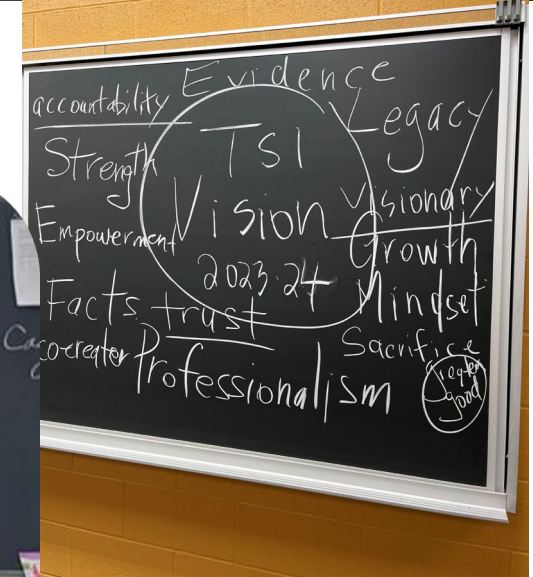 Evidence
accountability
Legacy
TSI
Strength
Vision
Visionary
Empowerment
Growth
2023-24
Mindset
Facts
trust
Sacrifice
co-creater
Professionalism
greater
good